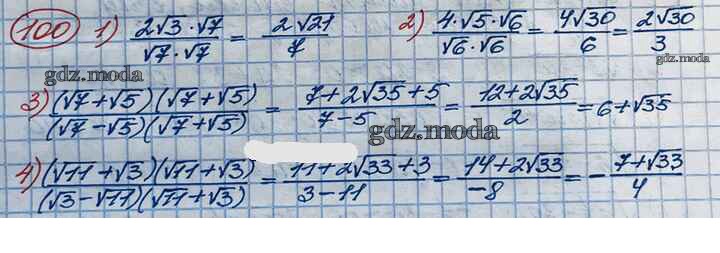 100 1) 2√3·√7 / √7·√7 = 2√21 / 7 2) 4·√5·√6 / √6·√6 = 4√30 / 6 = 2√30 / 3
gdz.moda gdz.moda
3) (√7+√5)(√7+√5) / (√7-√5)(√7+√5) = 7+2√35+5 / 7-5 = 12+2√35 / 2 = 6+√35
gdz.moda
4) (√11+√3)(√11+√3) / (√3-√11)(√11+√3) = 11+2√33+3 / 3-11 = 14+2√33 / -8 = - 7+√33 / 4